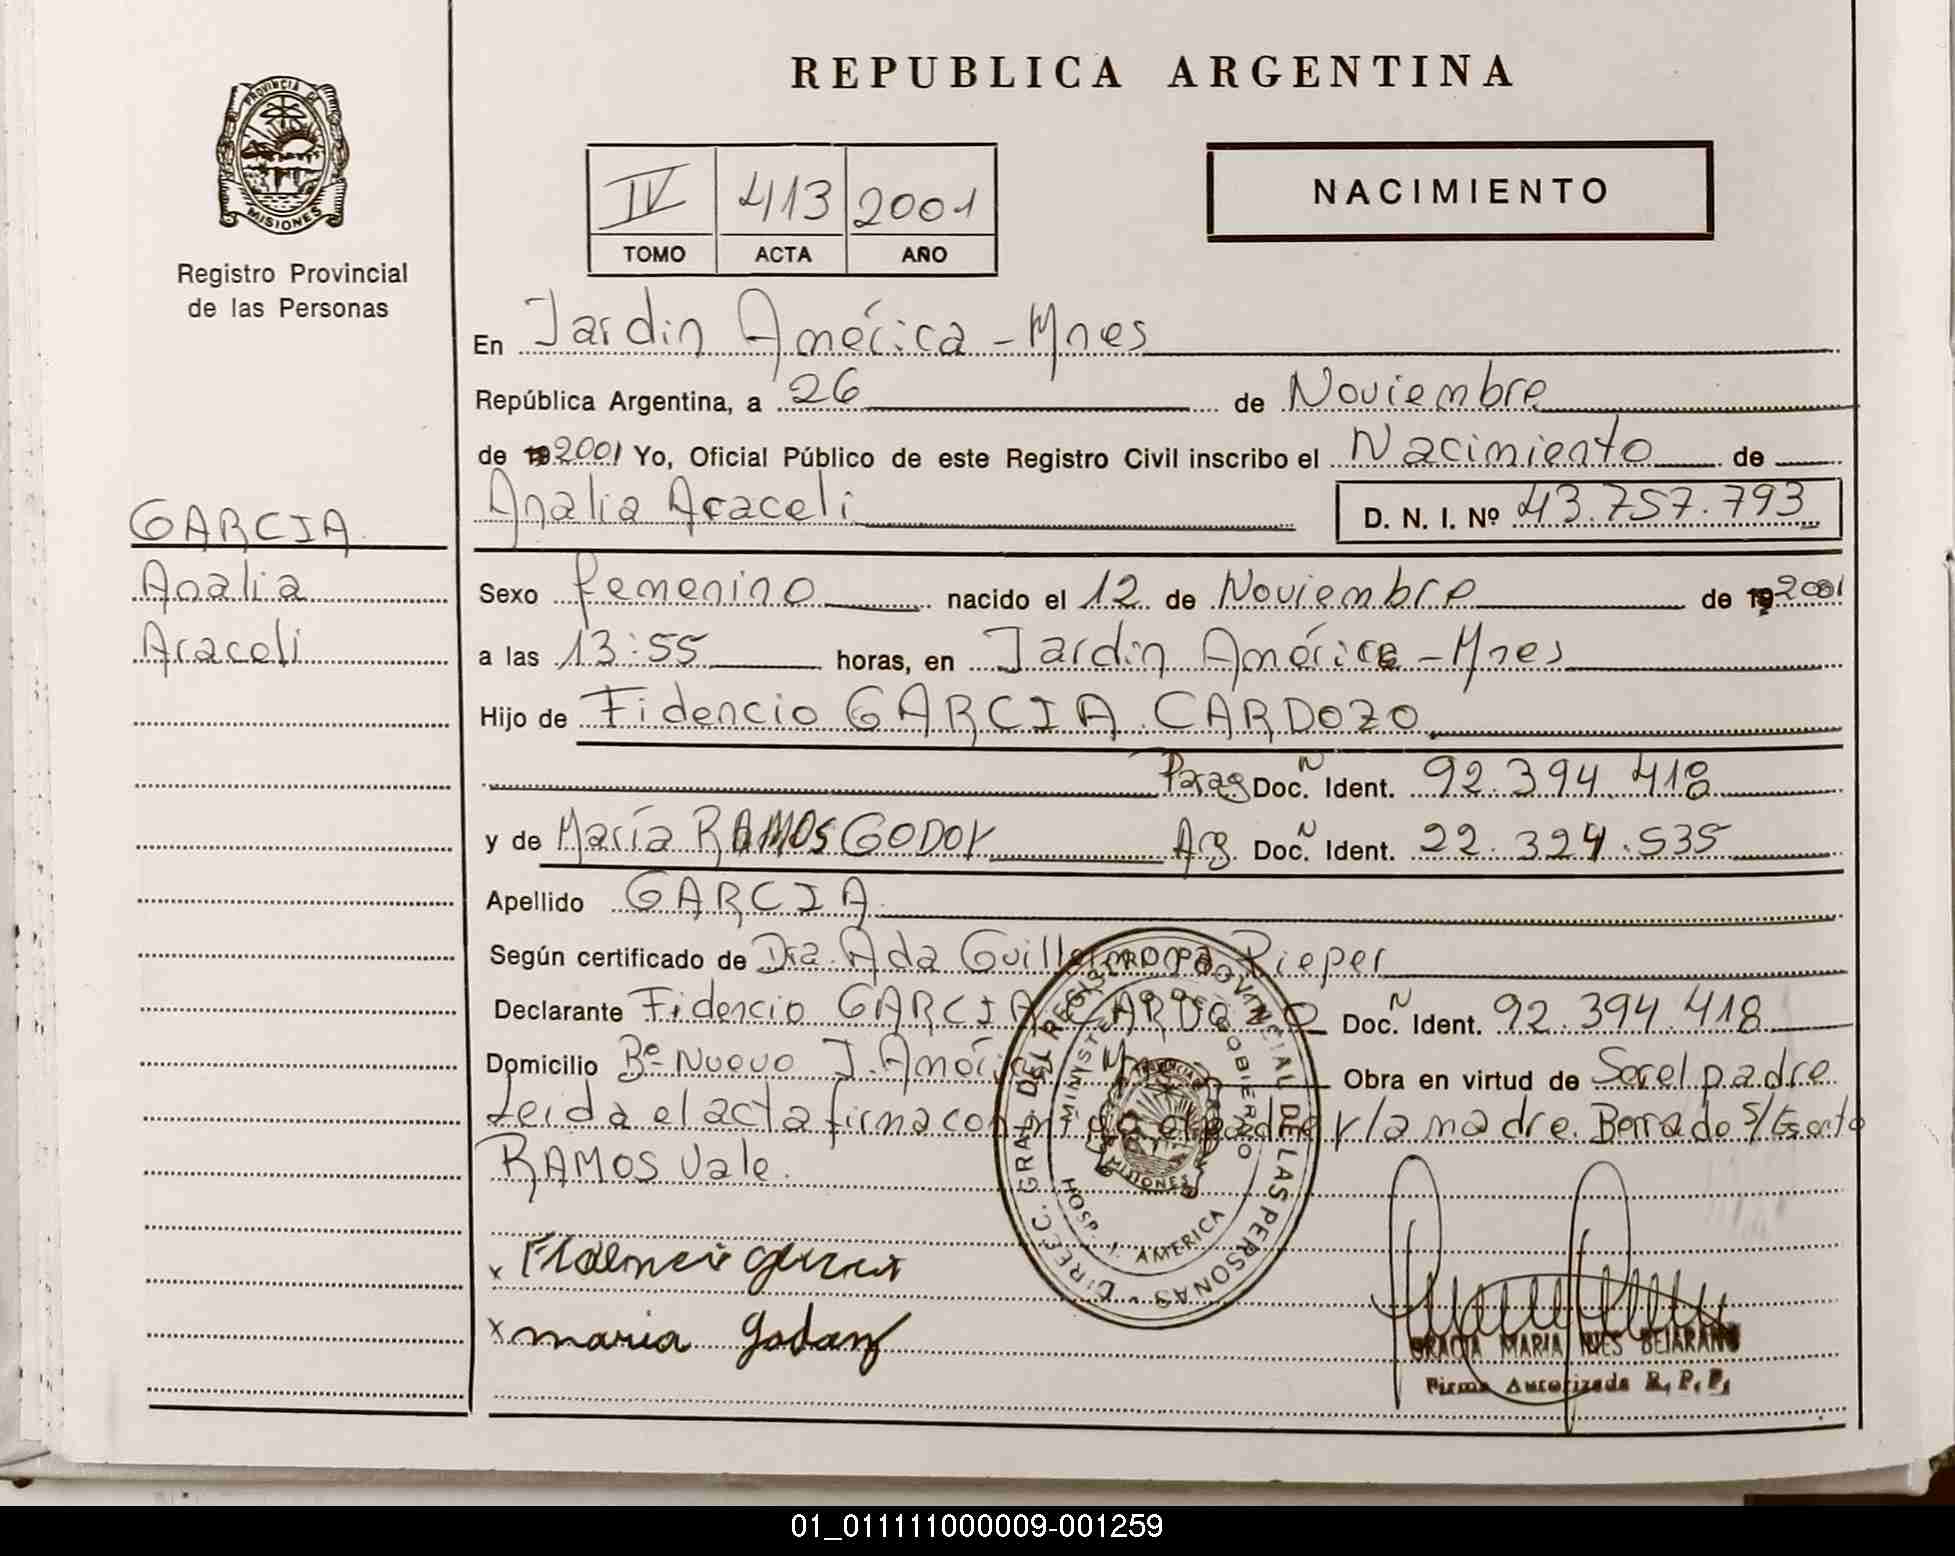 REPUBLICA ARGENTINA
PROVINCIA DE
MISIONES
Registro Provincial
de las Personas
IV 413 2001
TOMO ACTA AÑO
NACIMIENTO
En Jardin América - Mnes
República Argentina, a 26 de Noviembre
de 19 2001 Yo, Oficial Público de este Registro Civil inscribo el Nacimiento de
Analia Araceli D. N. I. Nº 43.757.793
GARCIA
Analia
Araceli
Sexo femenino nacido el 12 de Noviembre de 19 2001
a las 13:55 horas, en Jardin América - Mnes
Hijo de Fidencio GARCIA CARDOZO
Parag Doc. N Ident. 92.394.418
y de María RAMOS GODOY Arg. Doc. N Ident. 22.324.535
Apellido GARCIA
Según certificado de Dra. Ada Guillermona Pieper
Declarante Fidencio GARCIA CARDOZO Doc. N Ident. 92.394.418
Domicilio Bº Nuevo J. América Mnes Obra en virtud de Ser el padre
Leida el acta firma conmigo el padre y la madre. Borrado s/
RAMOS Vale.
DIRECC. GRAL. DEL REGISTRO PROVINCIAL DE LAS PERSONAS
MINISTERIO DE GOBIERNO
MISIONES
HOSP. J. AMERICA
x Fidencio garcia
x maria godoy
GRACIA MARIA INES BEJARANO
Firma Autorizada R. P. P.
01_011111000009-001259